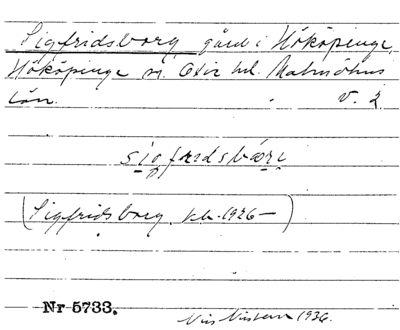 Sigfridsborg gård i Hököpinge,
Hököpinge sn. Oxie hd. Malmöhus
län. V. 2
(Sigfridsborg, kb. 1926 —)
Nr 5733.
1936.